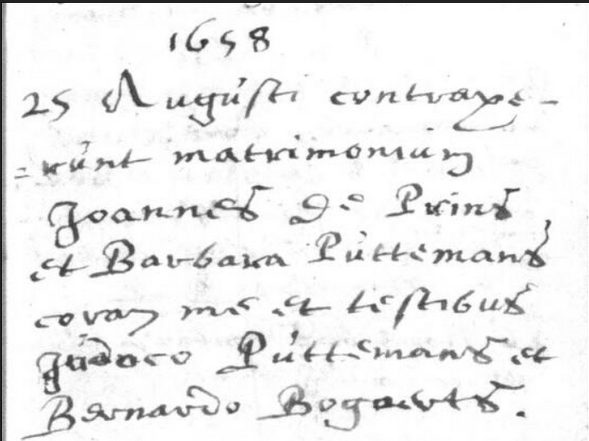 1658
25 Augusti contraxe-
=runt matrimonium
Joannes De Prins
et Barbara Puttemans
coram me et testibus
Judoco Puttemans et
Bernardo Bogaerts.